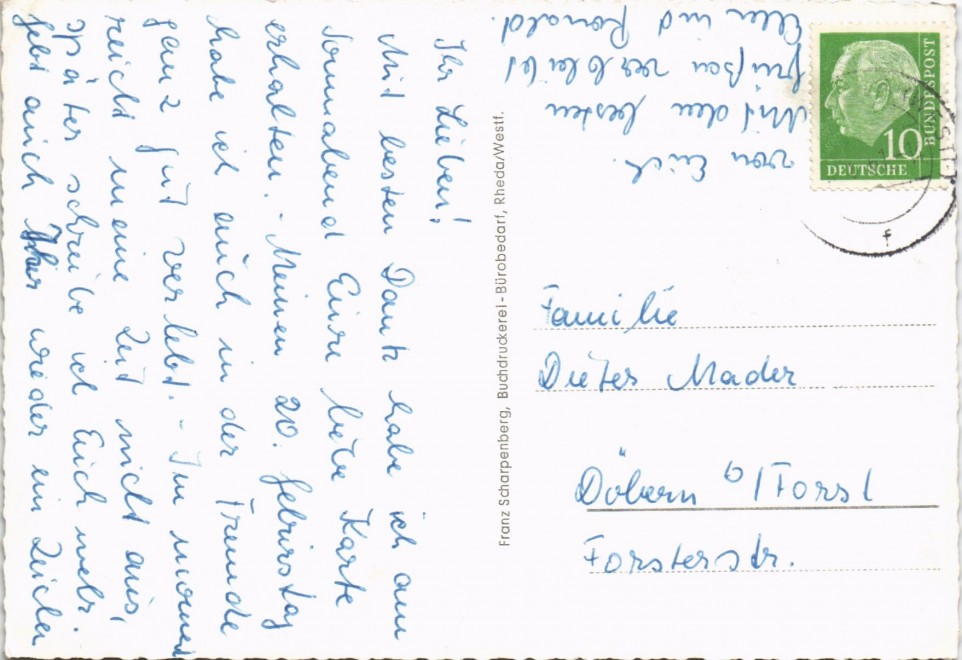 Ihr Lieben!
Mit besten Dank habe ich am
Sonnabend Eure liebe Karte
erhalten. - Meinen 20. Geburtstag
habe ich auch in der Fremde
ganz gut verlebt. - Im moment
reicht meine Zeit nicht aus,
später schreibe ich Euch mehr.
Gebt auch Ihr wieder ein Zeichen
von Euch.
Mit den besten
Grüßen verbleibt
Ellen und Ronald.
Franz Scharpenberg, Buchdruckerei-Bürobedarf, Rheda/Westf.
10
DEUTSCHE
BUNDESPOST
f
Familie
Dieter Mader
Döbern b/Forst
Forsterstr.